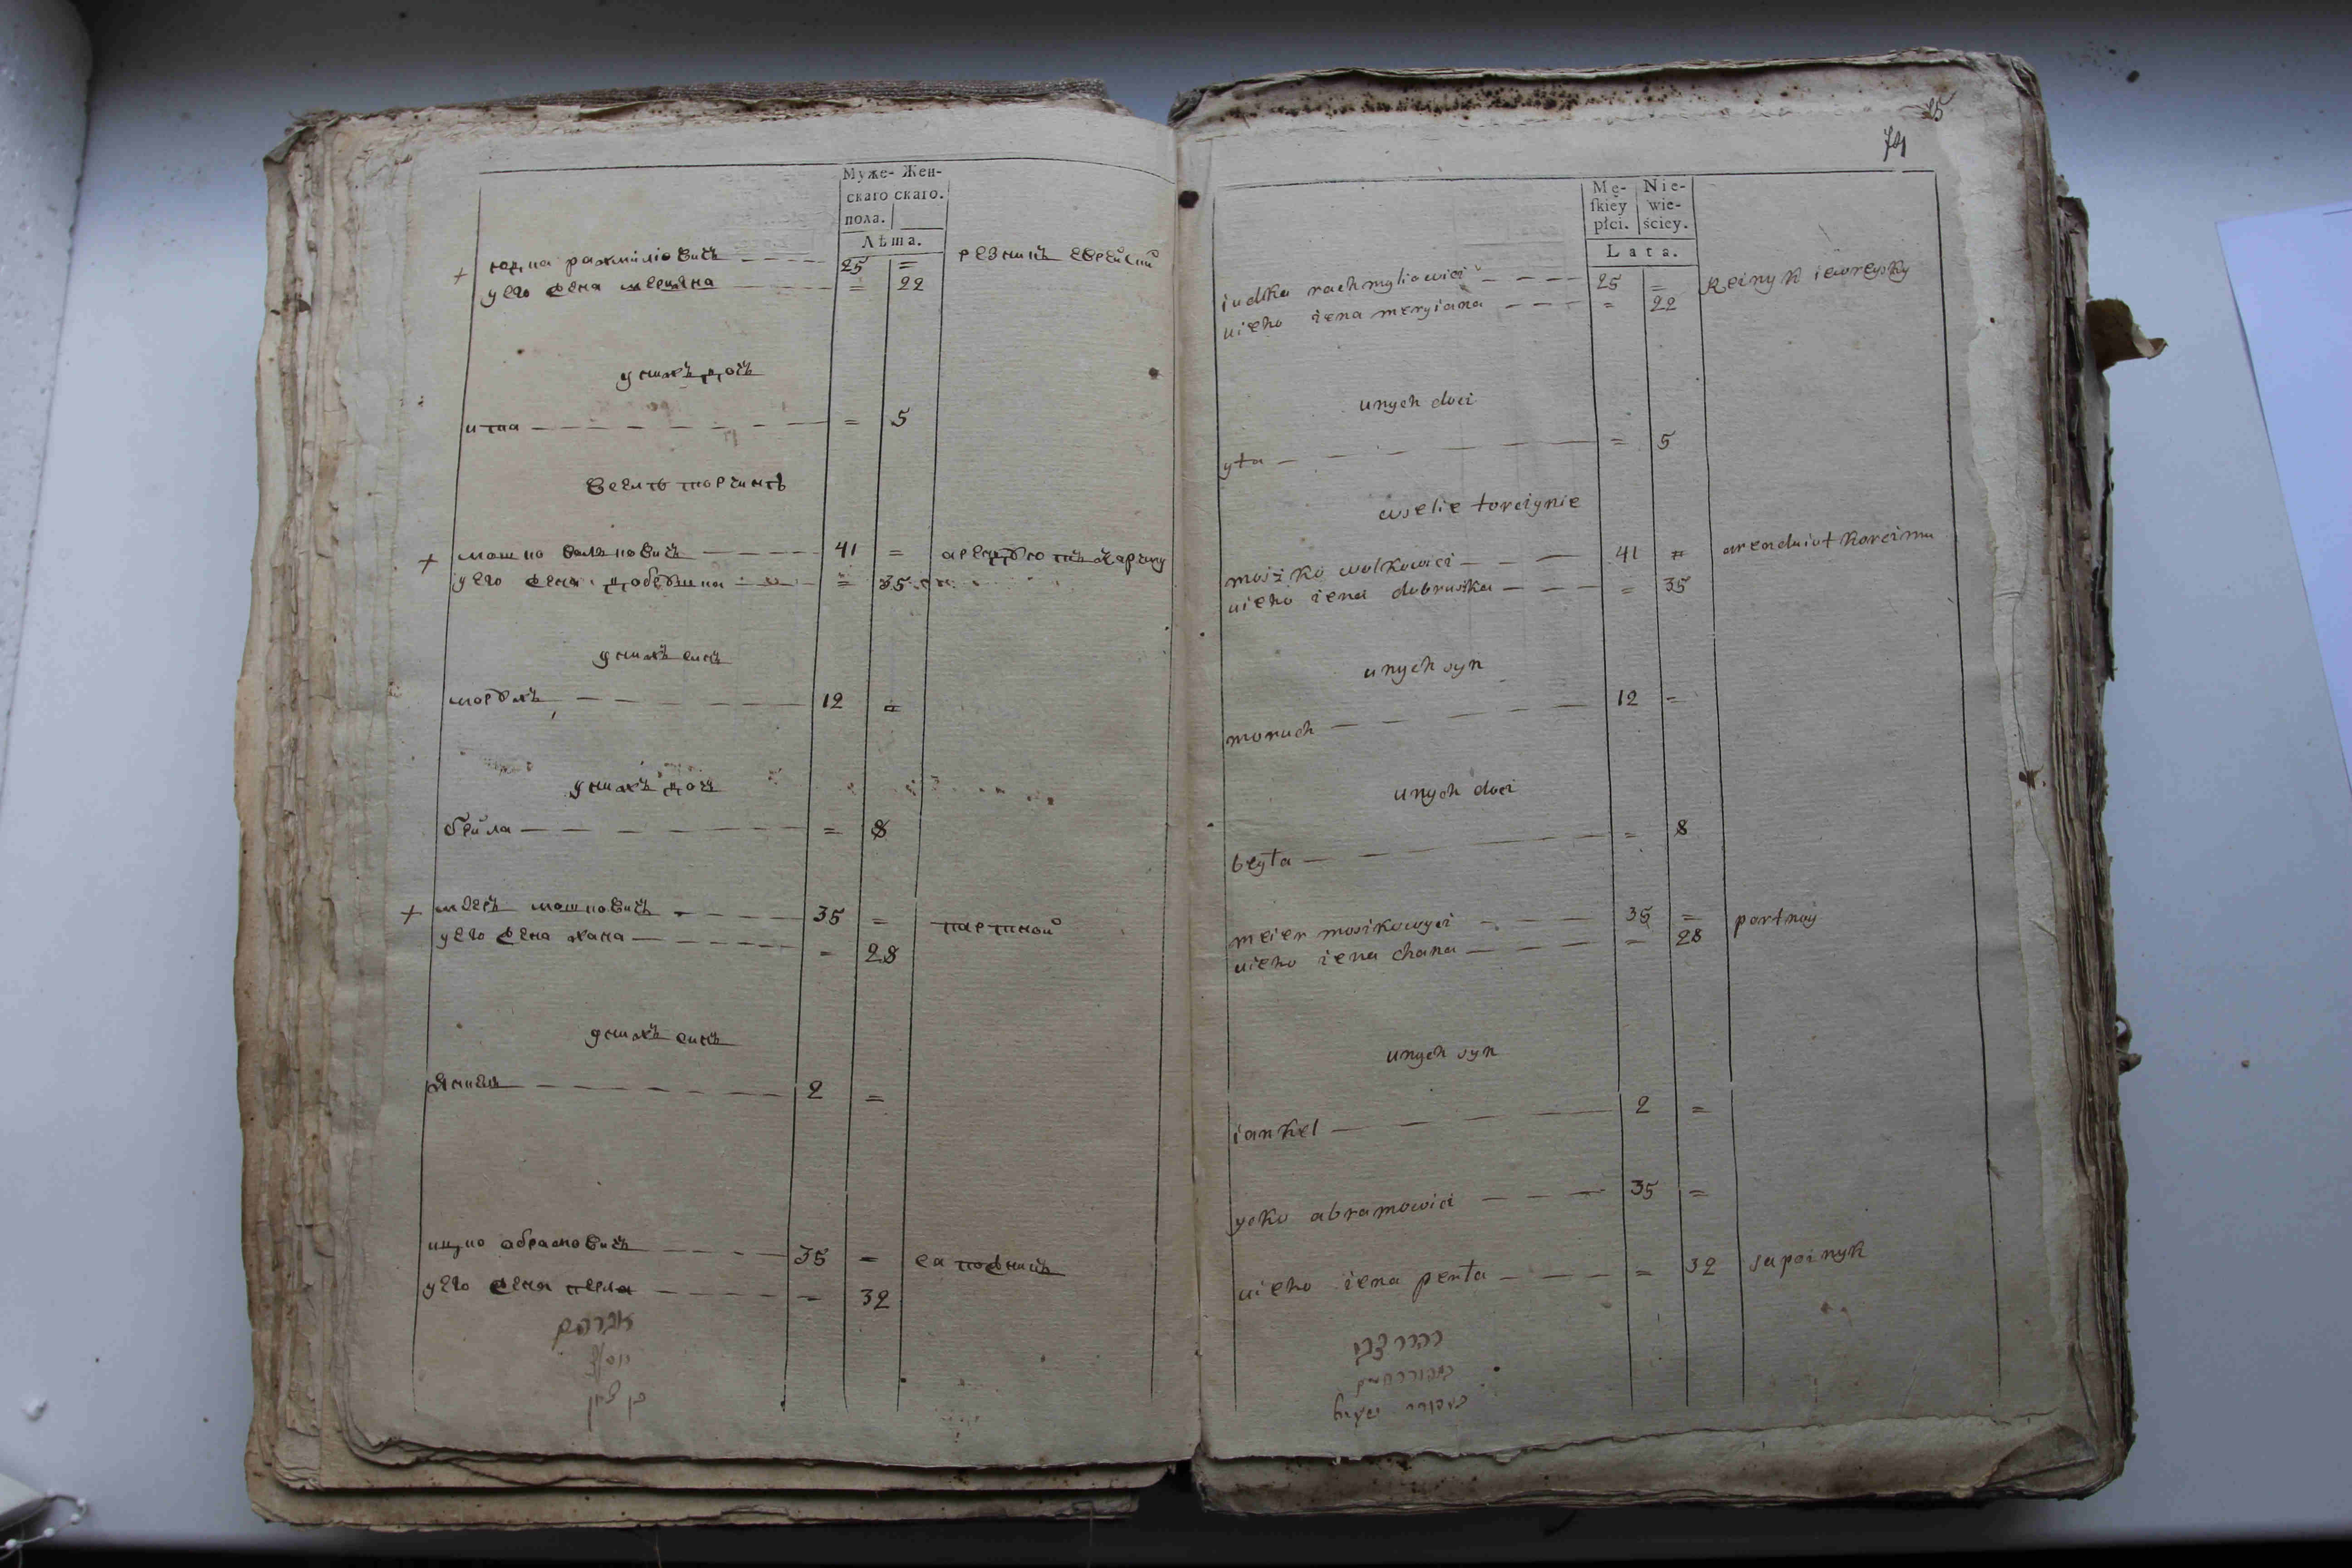 Муже- Жен-
скаго скаго.
пола.
Лѣта.
+ юдка рахмилiовичъ — — — 25 = резникъ еврейский
у его жена меряна — — = 22
у нихъ дочъ
итка — — — — — — = 5
вселѣ торчинѣ
+ мошко волковичъ — — — 41 =
у его жена добрушка — — = 35
у нихъ синъ
морухъ — — — — — 12 =
у нихъ дочъ
бейла — — — — — — = 8
+ мееръ мошковичъ — — — 35 = партной
у его жена хана — — — — = 28
у нихъ синъ
— — — — — 2 =
ицко абрамовичъ — — — 35 = сапожникъ
у его жена перла — — — = 32
אברהם
יוסף
בן ציון
25
74
Mę- Nie-
ſkiey wie-
płci. ściey.
Lata.
iudka rachmyliowici — — — 25 = Reznyk iewreysky
uieho żena meryiana — — — = 22
unych doci
yta — — — — — — = 5
wselie torciynie
moiżko wolkowici — — — 41 = arenduiut korcimu
uieho żena dobruszka — — — = 35
unych syn
moruch — — — — — 12 =
unych doci
beyła — — — — — — = 8
meier moszkowyci — — — 35 = portnoy
uieho żena chana — — — — = 28
unych syn
iankel — — — — 2 =
ycko abramowici — — — 35 =
uieho żena perła — — — = 32 sapoznyk